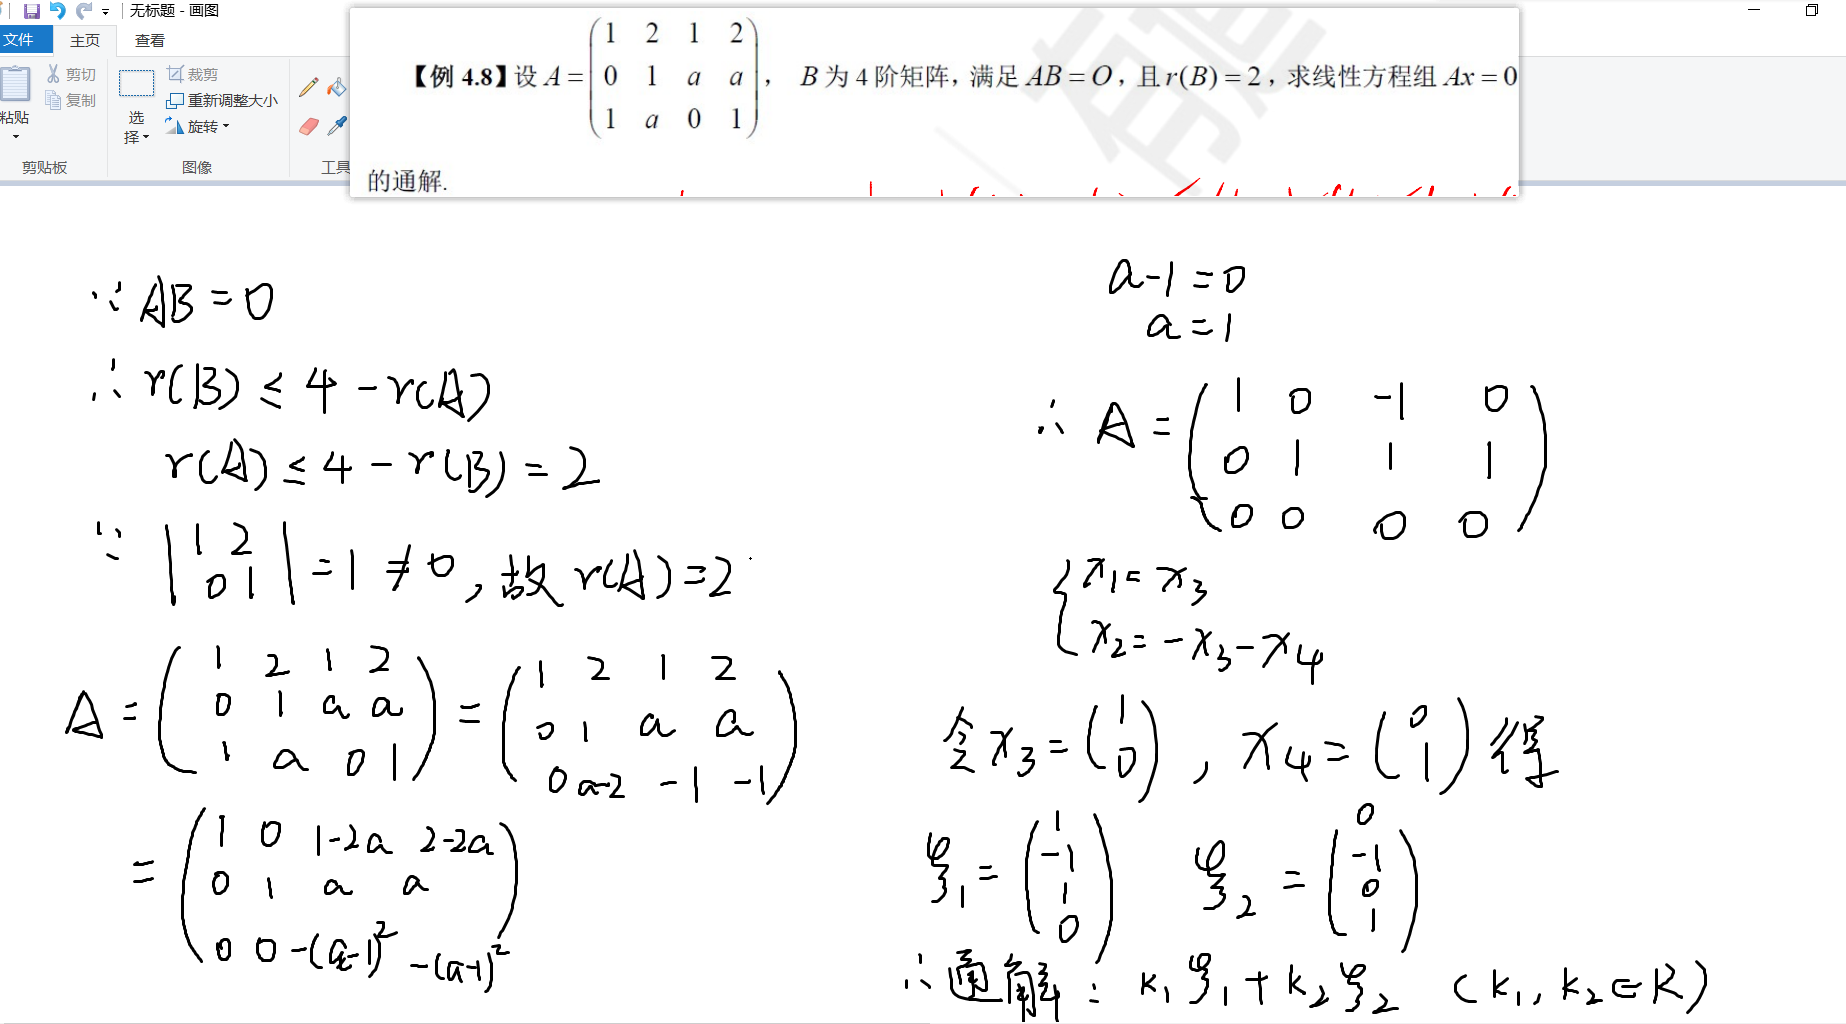 无标题 - 画图
文件 主页 查看
粘贴 剪切 复制 剪贴板
选择 裁剪 重新调整大小 旋转 图像
工具
【例 4.8】设 A = (1 2 1 2
0 1 a a
1 a 0 1), B 为 4 阶矩阵, 满足 AB = O, 且 r(B) = 2, 求线性方程组 Ax = 0
的通解.
∵ AB = 0
∴ r(B) ≤ 4 - r(A)
r(A) ≤ 4 - r(B) = 2
∵ |1 2
0 1| = 1 ≠ 0, 故 r(A) = 2
A = (1 2 1 2
0 1 a a
1 a 0 1) = (1 2 1 2
0 1 a a
0 a-2 -1 -1)
= (1 0 1-2a 2-2a
0 1 a a
0 0 -(a-1)² -(a-1)²)
a-1 = 0
a = 1
∴ A = (1 0 -1 0
0 1 1 1
0 0 0 0)
{x₁ = x₃
x₂ = -x₃ - x₄
令 x₃ = (1
0), x₄ = (0
1) 得
ξ₁ = (1
-1
1
0) ξ₂ = (0
-1
0
1)
∴ 通解: k₁ξ₁ + k₂ξ₂ (k₁, k₂ ∈ R)